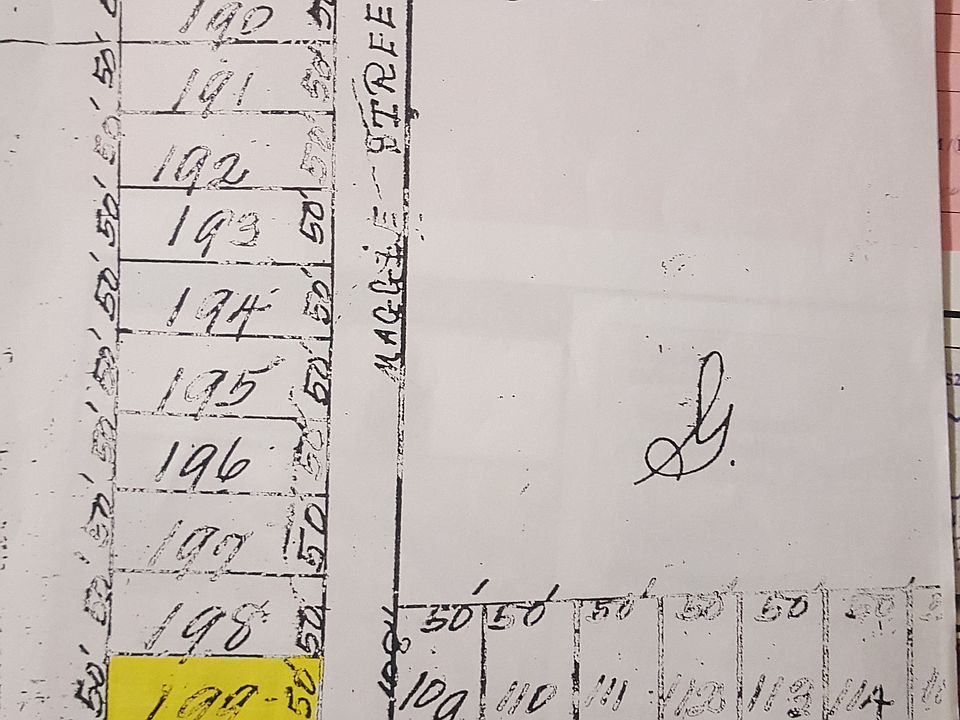 190
50' 191 50'
50' 192 50'
50' 193 50'
50' 194 50'
50' 195 50'
50' 196 50'
50' 197 50
50' 198 50
50' 199 50'
MAGGIE STREE
G.
50' 50' 50' 50' 50 50'
100'
109 110 111 112 113 114 11